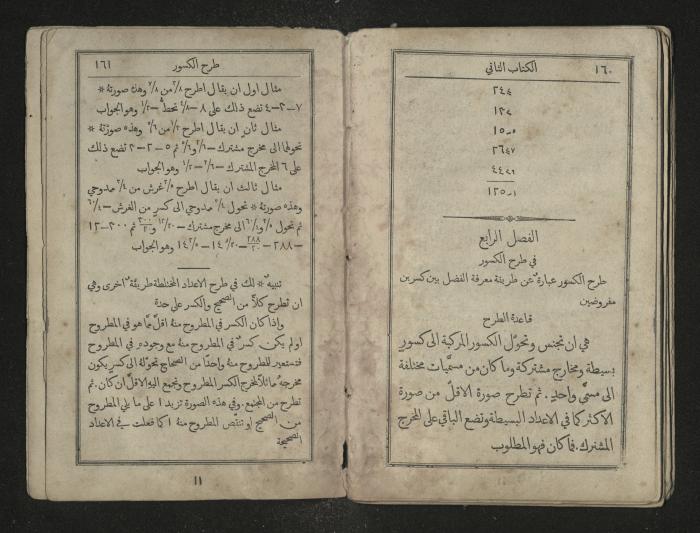 ١٦٠
الكتاب الثاني
الفصل الرابع
في طرح الكسور
طرح الكسور عبارة عن طريقة معرفة الفضل بين كسرين
مفروضين
قاعدة الطرح
هي ان تجنس وتحوّل الكسور المركبة الى كسور
بسيطة ومخارج مشتركة وما كان من مسميات مختلفة
الى مسمّى واحد. ثم تطرح صورة الاقل من صورة
الاكثر كما في الاعداد البسيطة وتضع الباقي على المخرج
المشترك. فما كان فهو المطلوب
طرح الكسور
١٦١
مثال اول ان يقال اطرح من وهذه صورته *
تضع ذلك على وهو الجواب
مثال ثانٍ ان يقال اطرح من وهذه صورته *
تحولها الى مخرج مشترك ثم تضع ذلك
على ٦ المخرج المشترك وهو الجواب
مثال ثالث ان يقال اطرح غرش من ممدوحي
وهذه صورته * تحول ممدوحي الى كسر من الغرش
ثم تحول الى مخرج مشترك ثم
وهو الجواب
تنبيه * لك في طرح الاعداد المختلطة طريقة اخرى وهي
ان تطرح كلاًّ من الصحيح والكسر على حدة
واذا كان الكسر في المطروح منهُ اقلّ مما هو في المطروح
او لم يكن كسرٌ في المطروح منهُ مع وجوده في المطروح
فتستعير للمطروح منهُ واحدًا من الصحاح تحوّلهُ الى كسر يكون
مخرجهُ مماثلاً لمخرج الكسر المطروح وتجمع اليهِ الاقلّ ان كان. ثم
تطرح من المجتمع. وفي هذه الصورة تزيد ١ على ما يلي المطروح
من الصحيح او تنقّص المطروح منهُ ١ كما فعلت في الاعداد
الصحيحة
١١